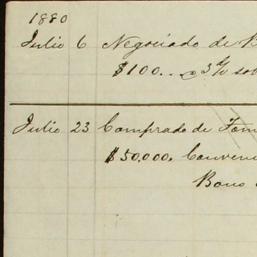 1880
Julio 6 Negociado de
$100.. @ 3%
Julio 23 Comprado de
$50.000.
Bono